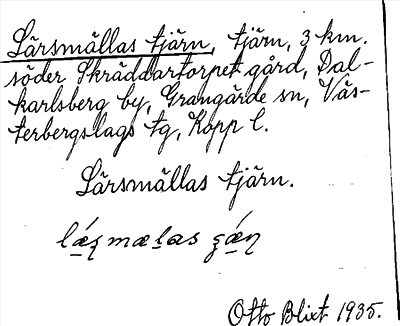 Lärsmällas tjärn, tjärn, 3 km.
söder Skräddartorpet gård, Dal-
karlsberg by, Grangärde sn, Väs-
terbergslags tg, Kopp l.
Lärsmällas tjärn.
Otto Blixt 1935.